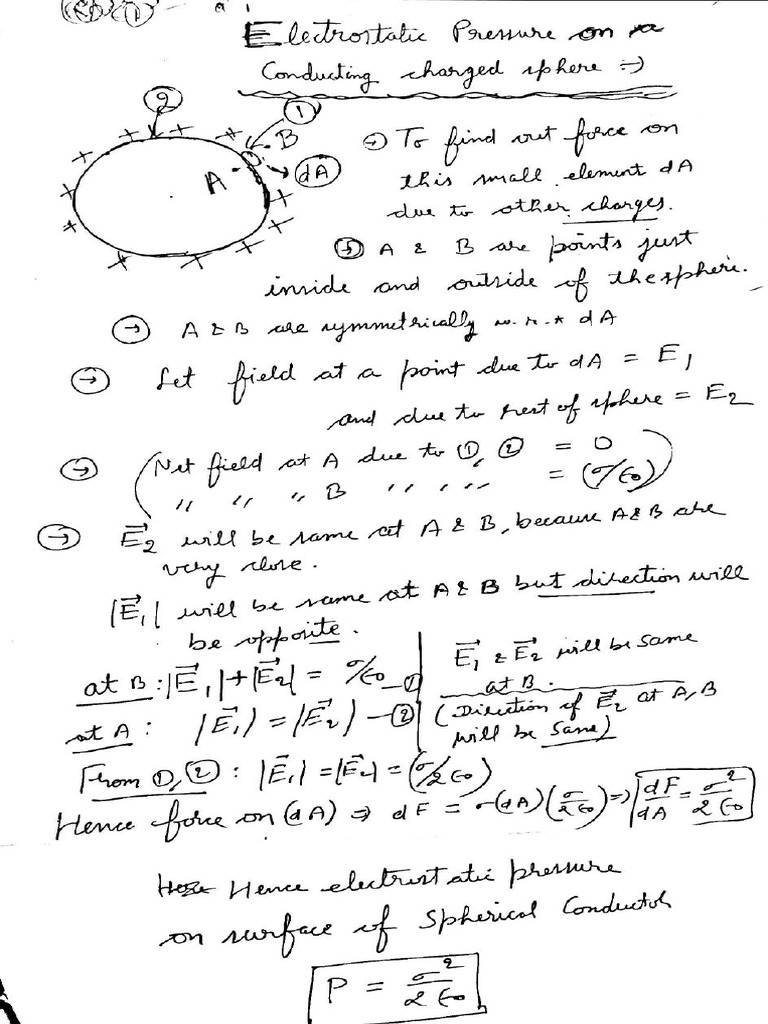 Electrostatic Pressure on a
Conducting charged sphere ⇒
②
①
B
A
dA
→ To find out force on
this small element dA
due to other charges.
→ A & B are points just
inside and outside of the sphere.
→ A & B are symmetrically w.r.t dA
→ Let field at a point due to dA = E₁
and due to rest of sphere = E₂
→ (Net field at A due to ①, ② = 0
〃 〃 〃 B 〃 〃 〃 = (σ/ε₀))
→ E⃗₂ will be same at A & B, because A & B are
very close.
|E⃗₁| will be same at A & B but direction will
be opposite.
at B : |E⃗₁| + |E⃗₂| = σ/ε₀ —①
E⃗₁ & E⃗₂ will be same
at B.
at A : |E⃗₁| = |E⃗₂| —②
(Direction of E⃗₂ at A, B
will be same)
From ①, ② : |E⃗₁| = |E⃗₂| = (σ/2ε₀)
Hence force on (dA) ⇒ dF = σ(dA)(σ/2ε₀) ⇒ dF/dA = σ²/2ε₀
Hence electrostatic pressure
on surface of Spherical Conductor
P = σ²/2ε₀